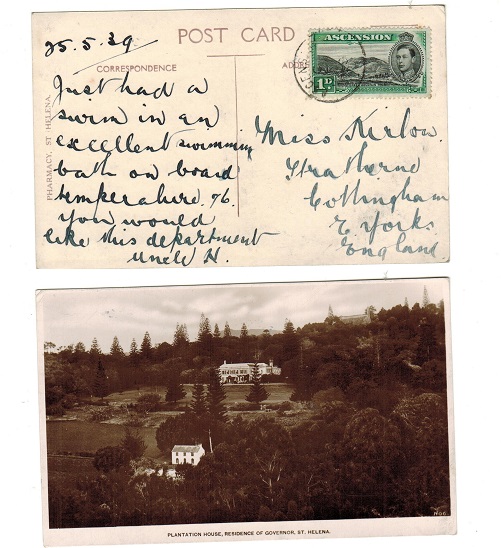 25.5.39
POST CARD
CORRESPONDENCE
ADD
ASCENSION
1D
PHARMACY, ST. HELENA.
Just had a
swim in an
excellent swimming
bath on board
temperature 76.
You would
like this department
Uncle H.
Miss Kirlow.
Stratherne
Cottingham
E. Yorks.
England.
PLANTATION HOUSE, RESIDENCE OF GOVERNOR, ST. HELENA.